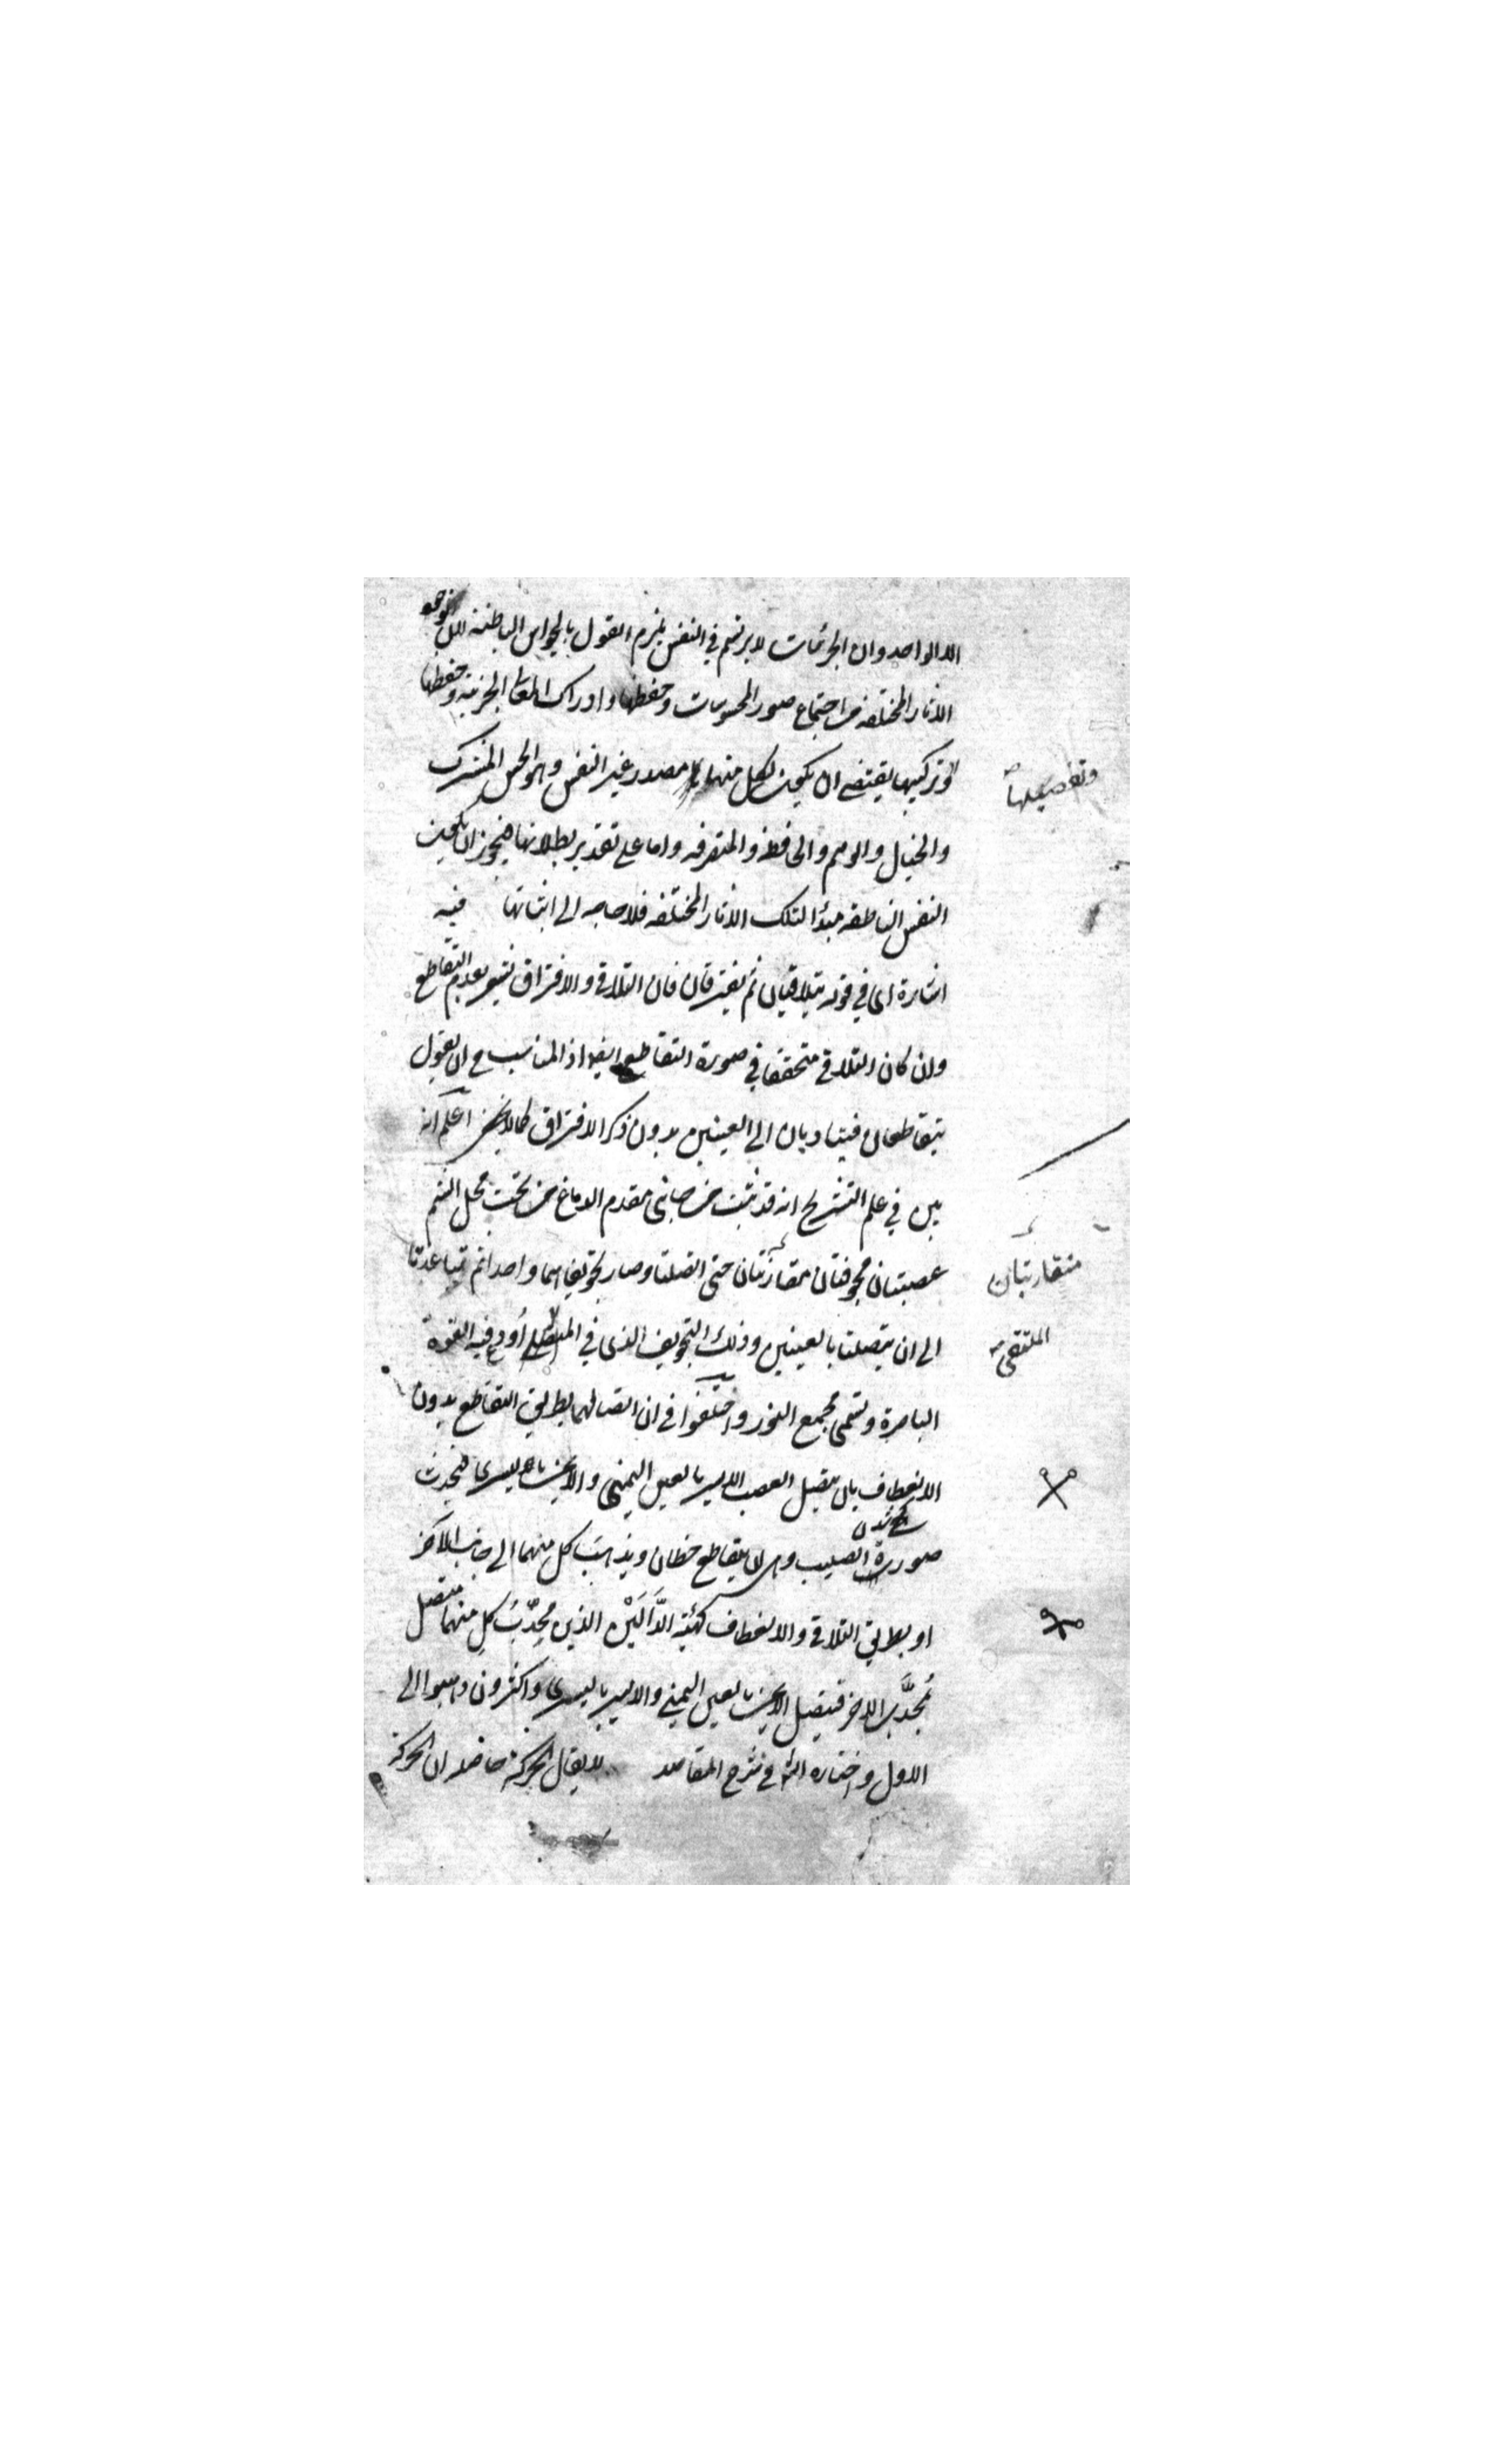 الا الواحد وان الجزئيات لا يرتسم في النفس يلزم القول بالحواس الباطنة لان توجه
الاثار المختلفة من اجتماع صور المحسوسات وحفظها وادراك المعاني الجزئية وحفظها
وتركيبها يقتضي ان يكون لكل منها مصدر غير النفس وهو الحس المشترك
وتفصيلها صح
والخيال والوهم والحافظة والمتصرفه واما على تقدير بطلانها فيجوز ان يكون
النفس الناطقه مبدأ لتلك الاثار المختلفه فلا حاجه الى اثباتها فيه
اشارة اى في قوله يتلاقيان ثم يفترقان فان التلاقي والافتراق يشعر بعدم التقاطع
وان كان التلاقي متحققا في صورة التقاطع ايضا اذ المناسب ح ان يقول
يتقاطعان فيتاديان الى العينين بدون ذكر الافتراق كما لا يخفى اعلم انه
بين في علم التشريح انه قد نبتت من جانبي مقدم الدماغ من تحت محل الشم
عصبتان مجوفتان متقاربتان حتى اتصلتا وصار تجويفاهما واحدا ثم تباعدتا
متقاربتان
الى ان يتصلتا بالعينين وذلك التجويف الذى في الملتقى أودع فيه القوة
الملتقى صح
الباصرة وتسمى مجمع النور واختلفوا في ان اتصالهما بطريق التقاطع بدون
الانعطاف بان يتصل العصب الايسر بالعين اليمنى والايمن باليسرى فيحدث
صورة الصليب وهى ان يتقاطع خطان ويذهب كل منهما الى جانب الآخر
او بطريق التلاقي والانعطاف كهيئة الدَّالَيْن الذين محدّبُ كل منهما متصل
بمحدَّب الاخر فيتصل الايمن بالعين اليمنى والايسر باليسرى واكثرون ذهبوا الى
الاول واختاره الش في شرح المقاصد لا يقال الحركة حاصله ان الحركة